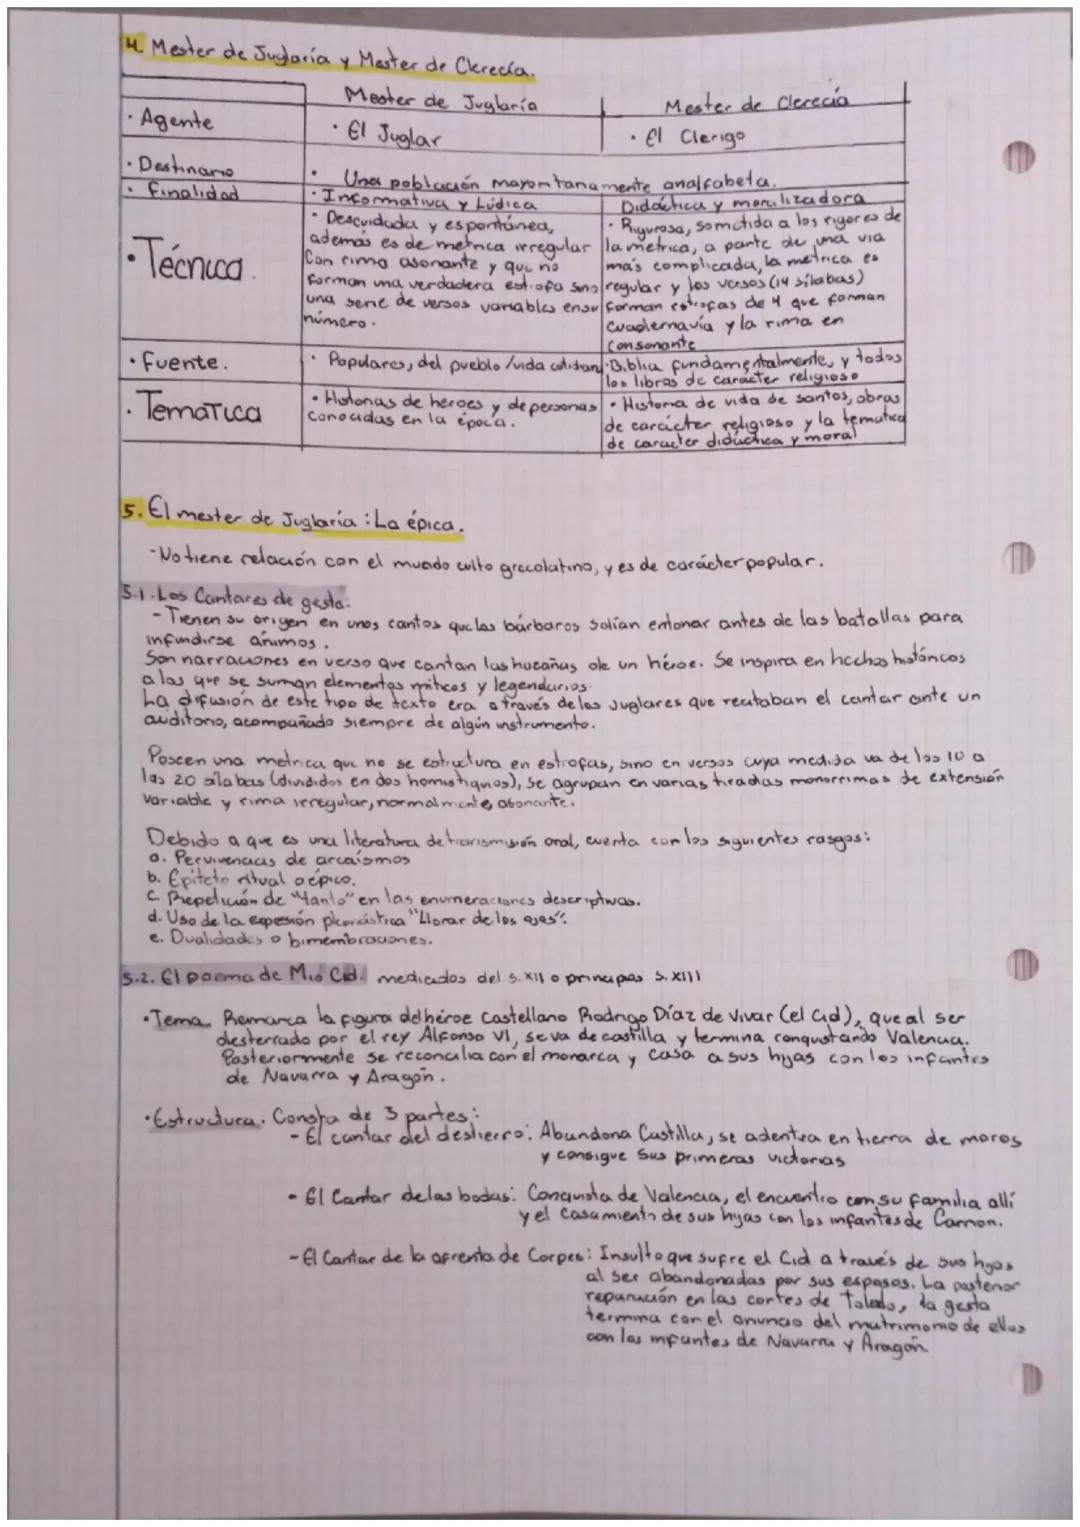 4. Mester de Juglaría y Mester de Clerecía.
Mester de Juglaría
Mester de Clerecía
· Agente
· El Juglar
· El Clerigo
· Destinario
· Una población mayoritariamente analfabeta.
· Finalidad
· Informativa y Lúdica
Didáctica y moralizadora
· Técnica.
· Descuidada y espontánea,
además es de metrica irregular
Con rima asonante y que no
forman una verdadera estrofa sino
una serie de versos variables en su
número.
· Rigurosa, sometida a los rigores de
la metrica, a parte de una via
más complicada, la metrica es
regular y los versos (14 sílabas)
forman estrofas de 4 que forman
Cuadernavía y la rima en
Consonante
· Fuente.
· Populares, del pueblo /vida cotidiana
· Biblia fundamentalmente, y todos
los libros de carácter religioso
· Tematica
· Historias de héroes y de personas
conocidas en la época.
· Historia de vida de santos, obras
de carácter religioso y la tematica
de caracter didáctica y moral
5. El mester de Juglaría : La épica.
- No tiene relación con el mundo culto grecolatino, y es de carácter popular.
5.1. Los Cantares de gesta.
- Tienen su origen en unos cantos que los bárbaros solían entonar antes de las batallas para
infundirse ánimos.
Son narraciones en verso que cantan las hazañas de un héroe. Se inspira en hechos históricos
a los que se suman elementos míticos y legendarios.
La difusión de este tipo de texto era a través de los Juglares que recitaban el cantar ante un
auditorio, acompañado siempre de algún instrumento.
Poseen una metrica que no se estructura en estrofas, sino en versos cuya medida va de los 10 a
las 20 sílabas (divididos en dos hemistiquios), se agrupan en varias tiradas monorrimas de extensión
variable y rima irregular, normalmente asonante.
Debido a que es una literatura de transmisión oral, cuenta con los siguientes rasgos:
a. Pervivencias de arcaísmos
b. Epiteto ritual o épico.
c. Repetición de "tanto" en las enumeraciones descriptivas.
d. Uso de la expresión pleonástica "Llorar de los ojos".
e. Dualidades o bimembraciones.
5.2. El poema de Mio Cid. mediados del s. XII o principios s. XIII
· Tema. Remarca la figura del héroe Castellano Rodrigo Díaz de Vivar (el Cid), que al ser
desterrado por el rey Alfonso VI, se va de castilla y termina conquistando Valencia.
Posteriormente se reconcilia con el monarca y casa a sus hijas con los infantes
de Navarra y Aragón.
· Estructura. Consta de 3 partes:
- El cantar del destierro: Abandona Castilla, se adentra en tierra de moros
y consigue sus primeras victorias
- El Cantar de las bodas: Conquista de Valencia, el encuentro con su familia allí
y el casamiento de sus hijas con los infantes de Carrión.
- El Cantar de la afrenta de Corpes: Insulto que sufre el Cid a través de sus hijas
al ser abandonadas por sus esposos. La posterior
reparación en las cortes de Toledo, la gesta
termina con el anuncio del matrimonio de ellas
con los infantes de Navarra y Aragón.